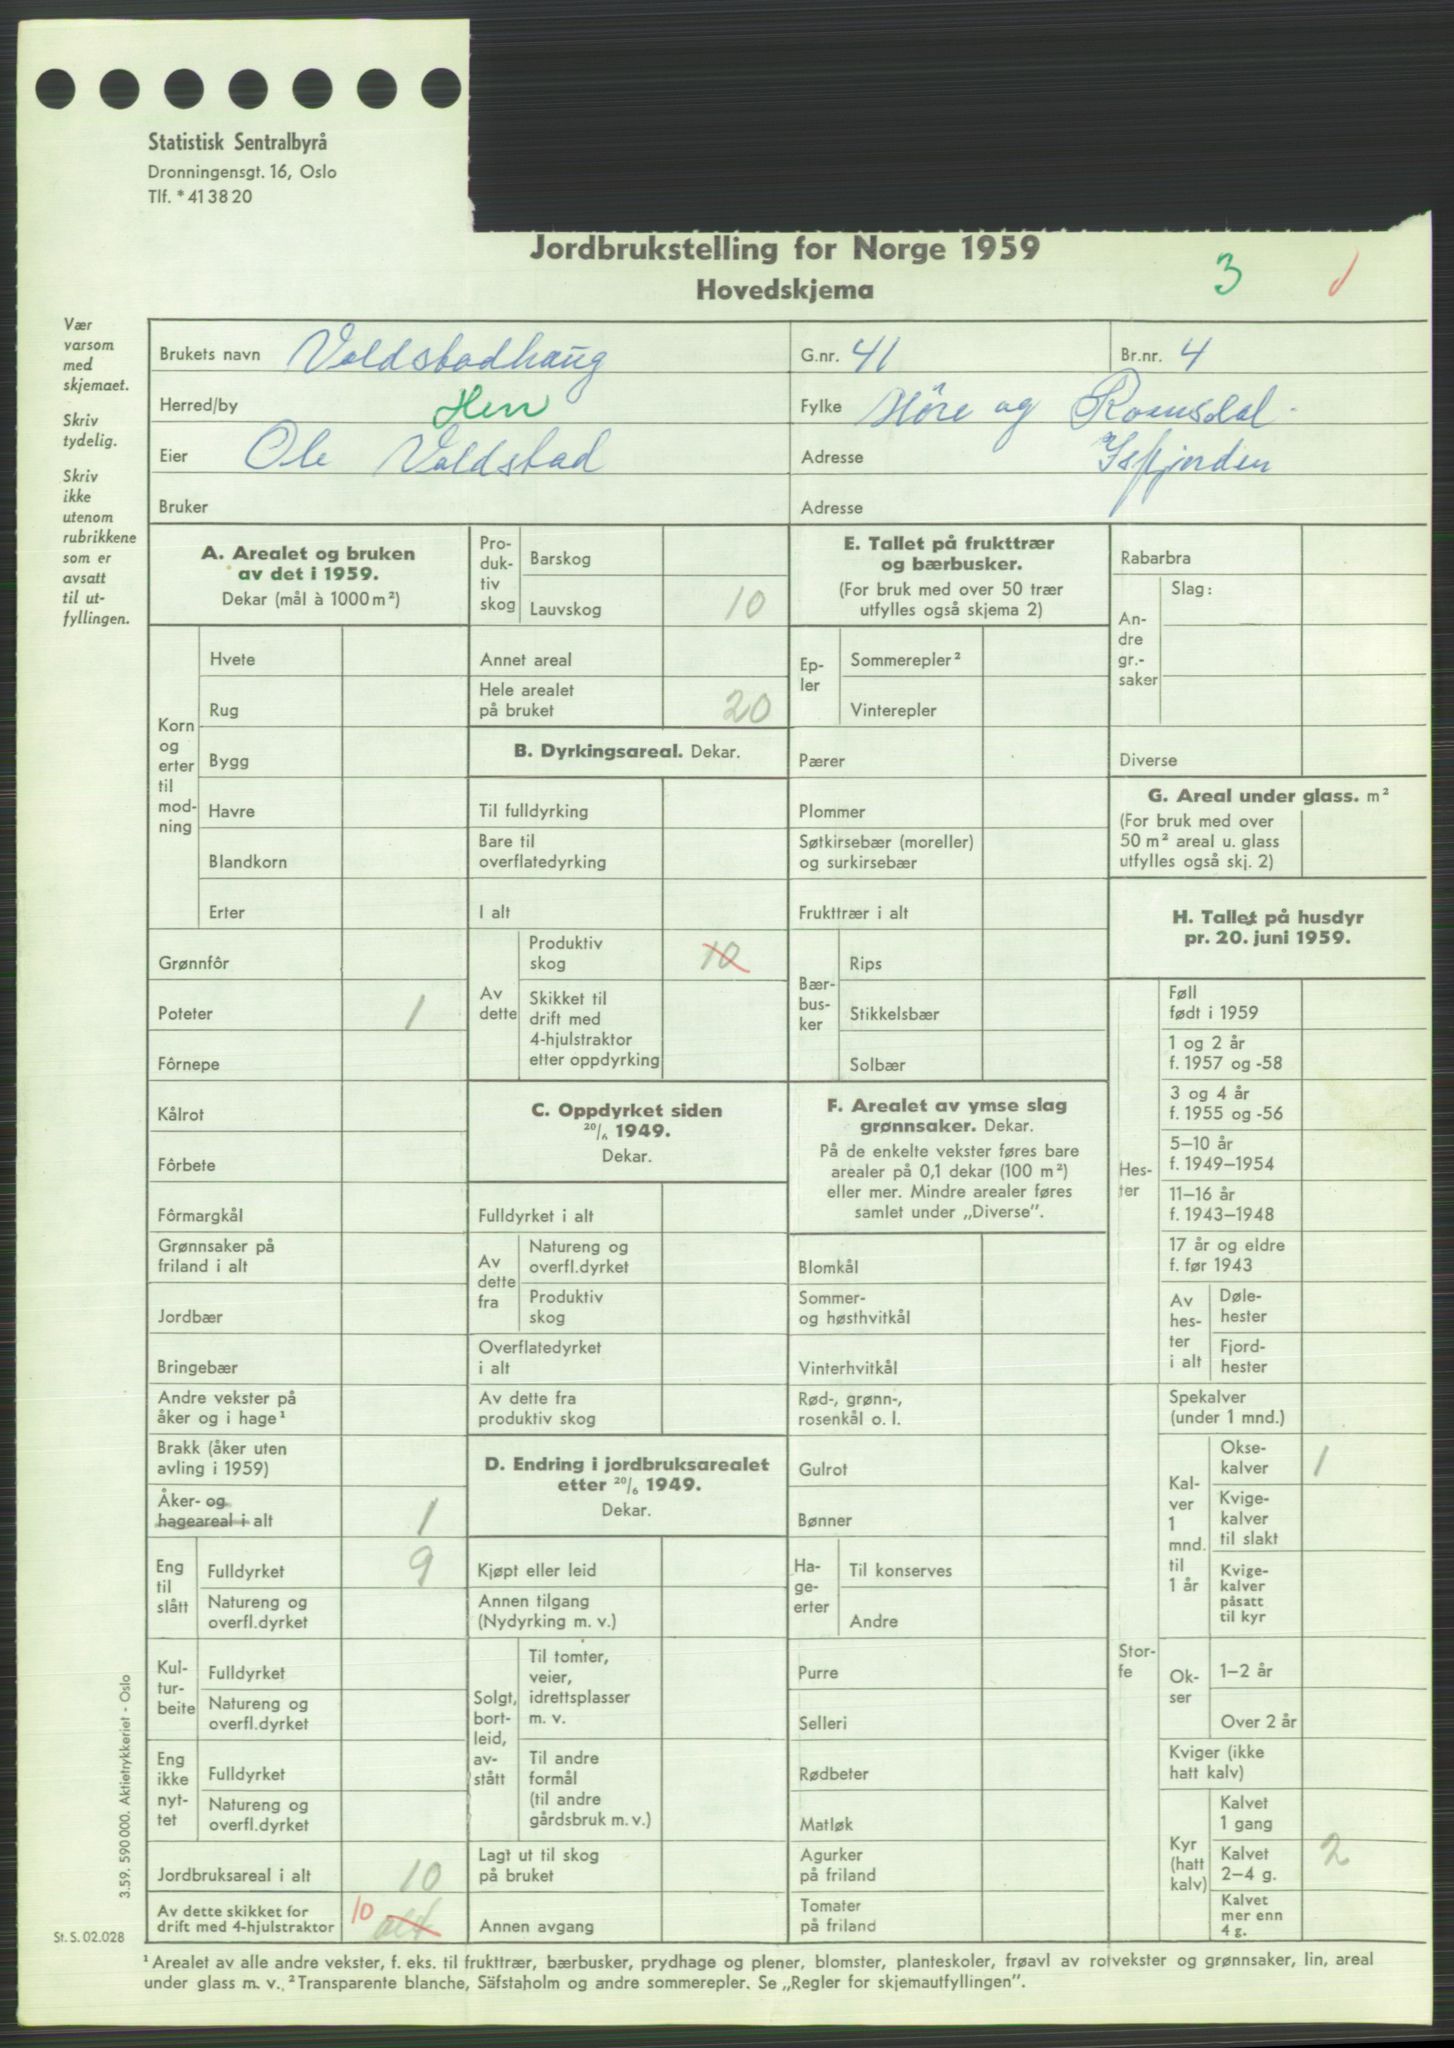 Statistisk Sentralbyrå
Dronningensgt. 16, Oslo
Tlf. * 41 38 20
Jordbrukstelling for Norge 1959
Hovedskjema
3
Vær
varsom
med
skjemaet.
Skriv
tydelig.
Skriv
ikke
utenom
rubrikkene
som er
avsatt
til ut-
fyllingen.
Brukets navn Voldstadhaug
G.nr. 41
Br.nr. 4
Herred/by Hen
Fylke Møre og Romsdal
Eier Ole Voldstad
Adresse Isfjorden
Bruker
Adresse
A. Arealet og bruken
av det i 1959.
Dekar (mål à 1000 m²)
Korn
og
erter
til
mod-
ning
Hvete
Rug
Bygg
Havre
Blandkorn
Erter
Grønnfôr
Poteter 1
Fôrnepe
Kålrot
Fôrbete
Fôrmargkål
Grønnsaker på
friland i alt
Jordbær
Bringebær
Andre vekster på
åker og i hage¹
Brakk (åker uten
avling i 1959)
Åker- og
hageareal i alt 1
Eng
til
slått
Fulldyrket 9
Natureng og
overfl.dyrket
Kul-
tur-
beite
Fulldyrket
Natureng og
overfl.dyrket
Eng
ikke
nyt-
tet
Fulldyrket
Natureng og
overfl.dyrket
Jordbruksareal i alt 10
Av dette skikket for
drift med 4-hjulstraktor 10 alt
Pro-
duk-
tiv
skog
Barskog
Lauvskog 10
Annet areal
Hele arealet
på bruket 20
B. Dyrkingsareal. Dekar.
Til fulldyrking
Bare til
overflatedyrking
I alt
Av
dette
Produktiv
skog 10
Skikket til
drift med
4-hjulstraktor
etter oppdyrking
C. Oppdyrket siden
20/6 1949.
Dekar.
Fulldyrket i alt
Av
dette
fra
Natureng og
overfl.dyrket
Produktiv
skog
Overflatedyrket
i alt
Av dette fra
produktiv skog
D. Endring i jordbruksarealet
etter 20/6 1949.
Dekar.
Kjøpt eller leid
Annen tilgang
(Nydyrking m. v.)
Solgt,
bort-
leid,
av-
stått
Til tomter,
veier,
idrettsplasser
m. v.
Til andre
formål
(til andre
gårdsbruk m. v.)
Lagt ut til skog
på bruket
Annen avgang
E. Tallet på frukttrær
og bærbusker.
(For bruk med over 50 trær
utfylles også skjema 2)
Ep-
ler
Sommerepler²
Vinterepler
Pærer
Plommer
Søtkirsebær (moreller)
og surkirsebær
Frukttrær i alt
Bær-
bus-
ker
Rips
Stikkelsbær
Solbær
F. Arealet av ymse slag
grønnsaker. Dekar.
På de enkelte vekster føres bare
arealer på 0,1 dekar (100 m²)
eller mer. Mindre arealer føres
samlet under „Diverse".
Blomkål
Sommer-
og høsthvitkål
Vinterhvitkål
Rød-, grønn-,
rosenkål o. l.
Gulrot
Bønner
Ha-
ge-
erter
Til konserves
Andre
Purre
Selleri
Rødbeter
Matløk
Agurker
på friland
Tomater
på friland
Rabarbra
An-
dre
gr.-
saker
Slag:
Diverse
G. Areal under glass. m²
(For bruk med over
50 m² areal u. glass
utfylles også skj. 2)
H. Tallet på husdyr
pr. 20. juni 1959.
Hes-
ter
Føll
født i 1959
1 og 2 år
f. 1957 og -58
3 og 4 år
f. 1955 og -56
5–10 år
f. 1949–1954
11–16 år
f. 1943–1948
17 år og eldre
f. før 1943
Av
hes-
ter
i alt
Døle-
hester
Fjord-
hester
Stor-
fe
Spekalver
(under 1 mnd.)
Kal-
ver
1
mnd.
til
1 år
Okse-
kalver 1
Kvige-
kalver
til slakt
Kvige-
kalver
påsatt
til kyr
Ok-
ser
1–2 år
Over 2 år
Kviger (ikke
hatt kalv)
Kyr
(hatt
kalv)
Kalvet
1 gang
Kalvet
2–4 g. 2
Kalvet
mer enn
4 g.
3.59. 590 000. Aktietrykkeriet - Oslo
St. S. 02.028
¹ Arealet av alle andre vekster, f. eks. til frukttrær, bærbusker, prydhage og plener, blomster, planteskoler, frøavl av rotvekster og grønnsaker, lin, areal
under glass m. v., ² Transparente blanche, Säfstaholm og andre sommerepler. Se „Regler for skjemautfyllingen".